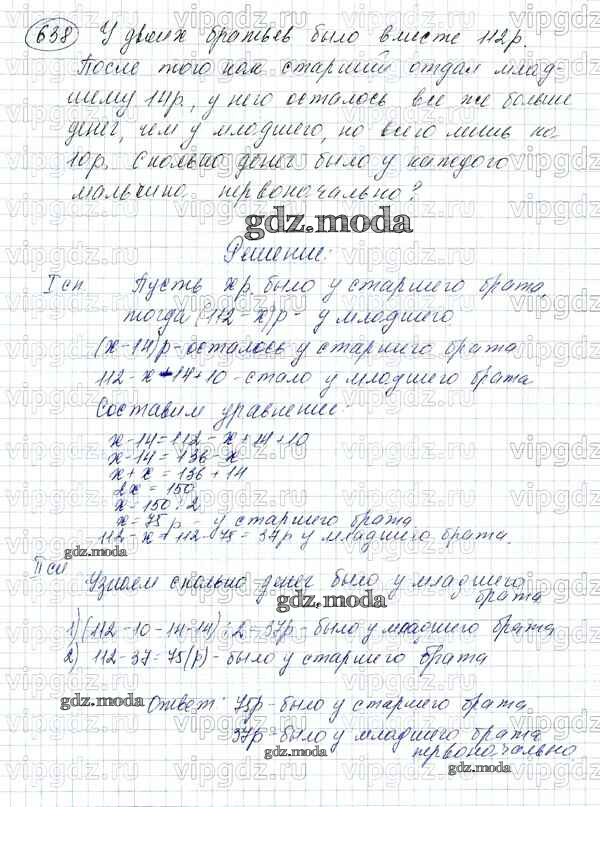 638 У двоих братьев было вместе 112р.
После того как старший отдал млад-
шему 14р, у него осталось все же больше
денег, чем у младшего, но всего лишь на
10р. Сколько денег было у каждого
мальчика первоначально?
gdz.moda
Решение:
I сп. Пусть хр. было у старшего брата,
тогда (112-х)р - у младшего.
(х-14)р-осталось у старшего брата
112-х+14+10-стало у младшего брата
Составим уравнение:
х-14=112-х+14+10
х-14=136-х
х+х=136+14
2х=150
х=150:2
х=75р - у старшего брата
112-х=112-75=37р у младшего брата.
gdz.moda
II сп
Узнаем сколько денег было у младшего
брата
gdz.moda
1) (112-10-14-14):2=37р-было у младшего брата
2) 112-37=75(р)-было у старшего брата
gdz.moda
Ответ: 75р-было у старшего брата
37р-было у младшего брата
gdz.moda
первоначально.
gdz.moda